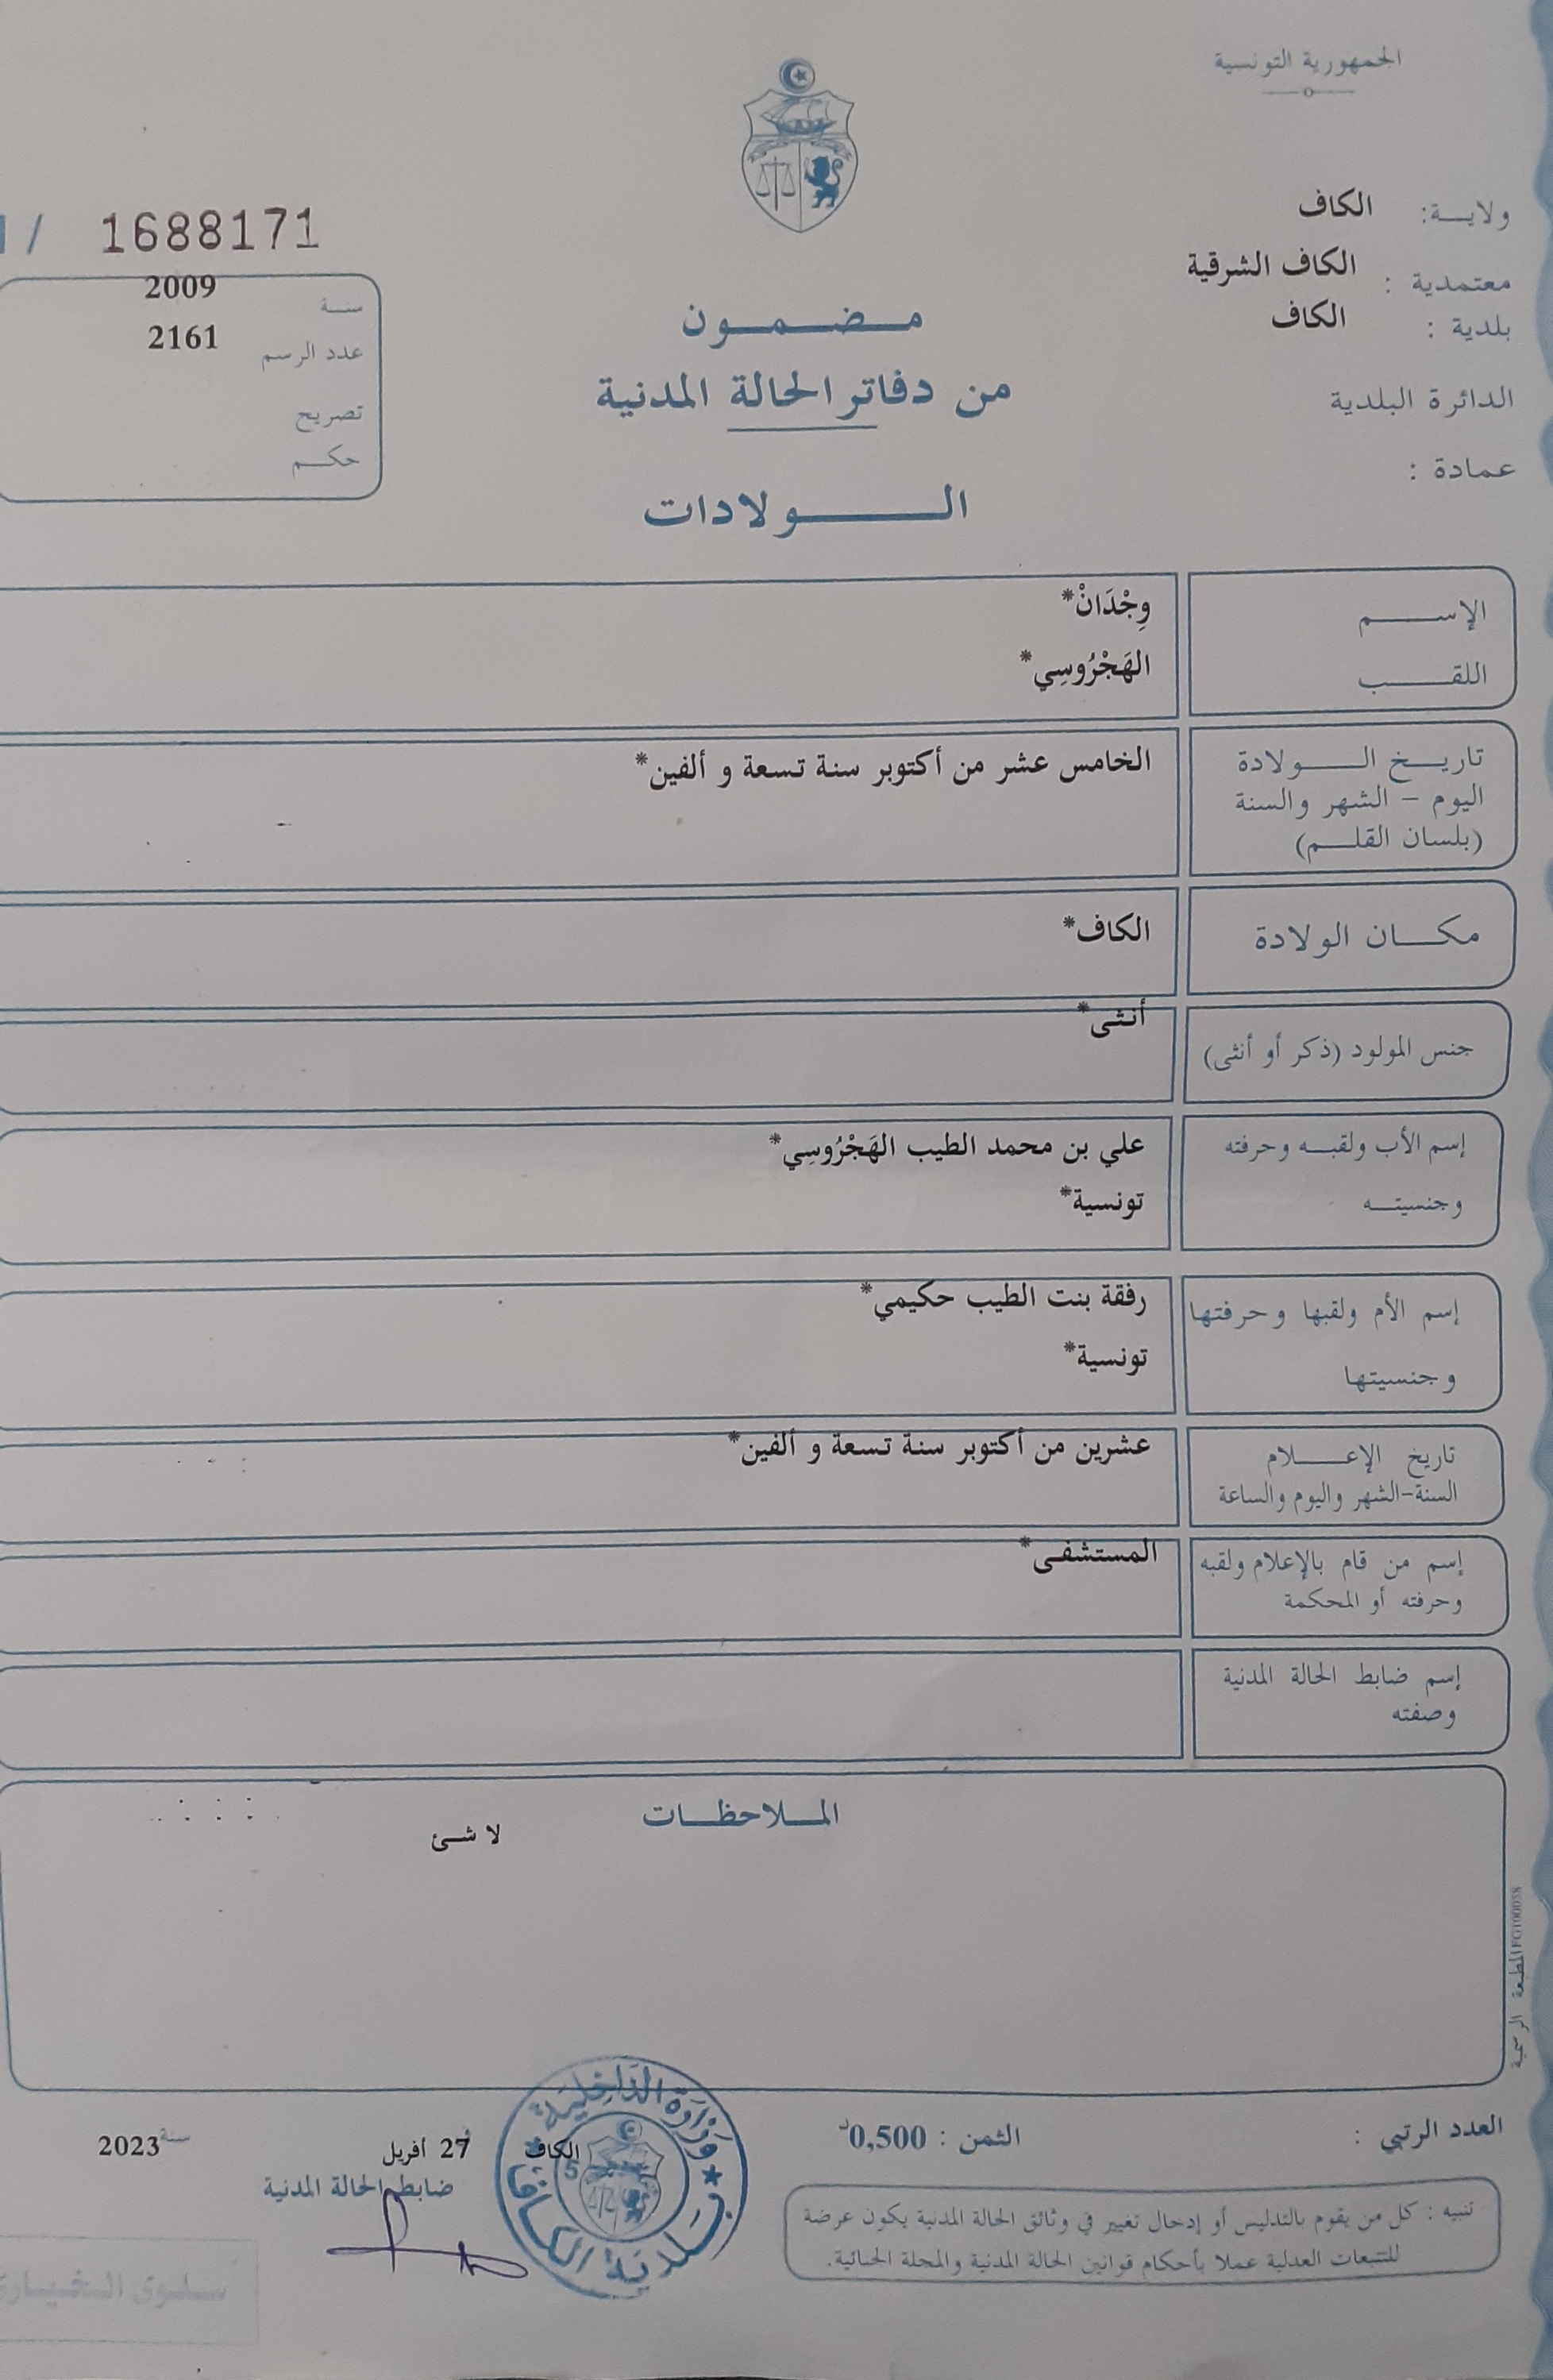 الجمهورية التونسية
ولايـــة: الكاف
معتمدية : الكاف الشرقية
بلدية : الكاف
الدائرة البلدية
عمادة :
/ 1688171
سنـة 2009
عدد الرسم 2161
تصريح
حكـــم
مــضــمــون
من دفاتر الحالة المدنية
الــــولادات
الإســــم وِجْدَانْ*
اللقــــب الهَجْرُوسِي*
تاريــخ الــــولادة الخامس عشر من أكتوبر سنة تسعة و ألفين*
اليوم – الشهر والسنة
(بلسان القلــم)
مكـــان الولادة الكاف*
جنس المولود (ذكر أو أنثى) أنثى*
إسم الأب ولقبــه وحرفته علي بن محمد الطيب الهَجْرُوسِي*
وجنسيتــه تونسية*
إسم الأم ولقبها وحرفتها رفقة بنت الطيب حكيمي*
وجنسيتها تونسية*
تاريخ الإعــــلام عشرين من أكتوبر سنة تسعة و ألفين*
السنة-الشهر واليوم والساعة
إسم من قام بالإعلام ولقبه المستشفى*
وحرفته أو المحكمة
إسم ضابط الحالة المدنية
وصفته
المــلاحظــات
لا شئ
المطبعة الرسمية
العدد الرتبي :
الثمن : 0,500د
الكاف في 27 أفريل سنة 2023
ضابط الحالة المدنية
وزارة الداخلية
بلدية الكاف
5
تنبيه : كل من يقوم بالتدليس أو إدخال تغيير في وثائق الحالة المدنية يكون عرضة
للتتبعات العدلية عملا بأحكام قوانين الحالة المدنية والمجلة الجنائية.
سلوى الخياري